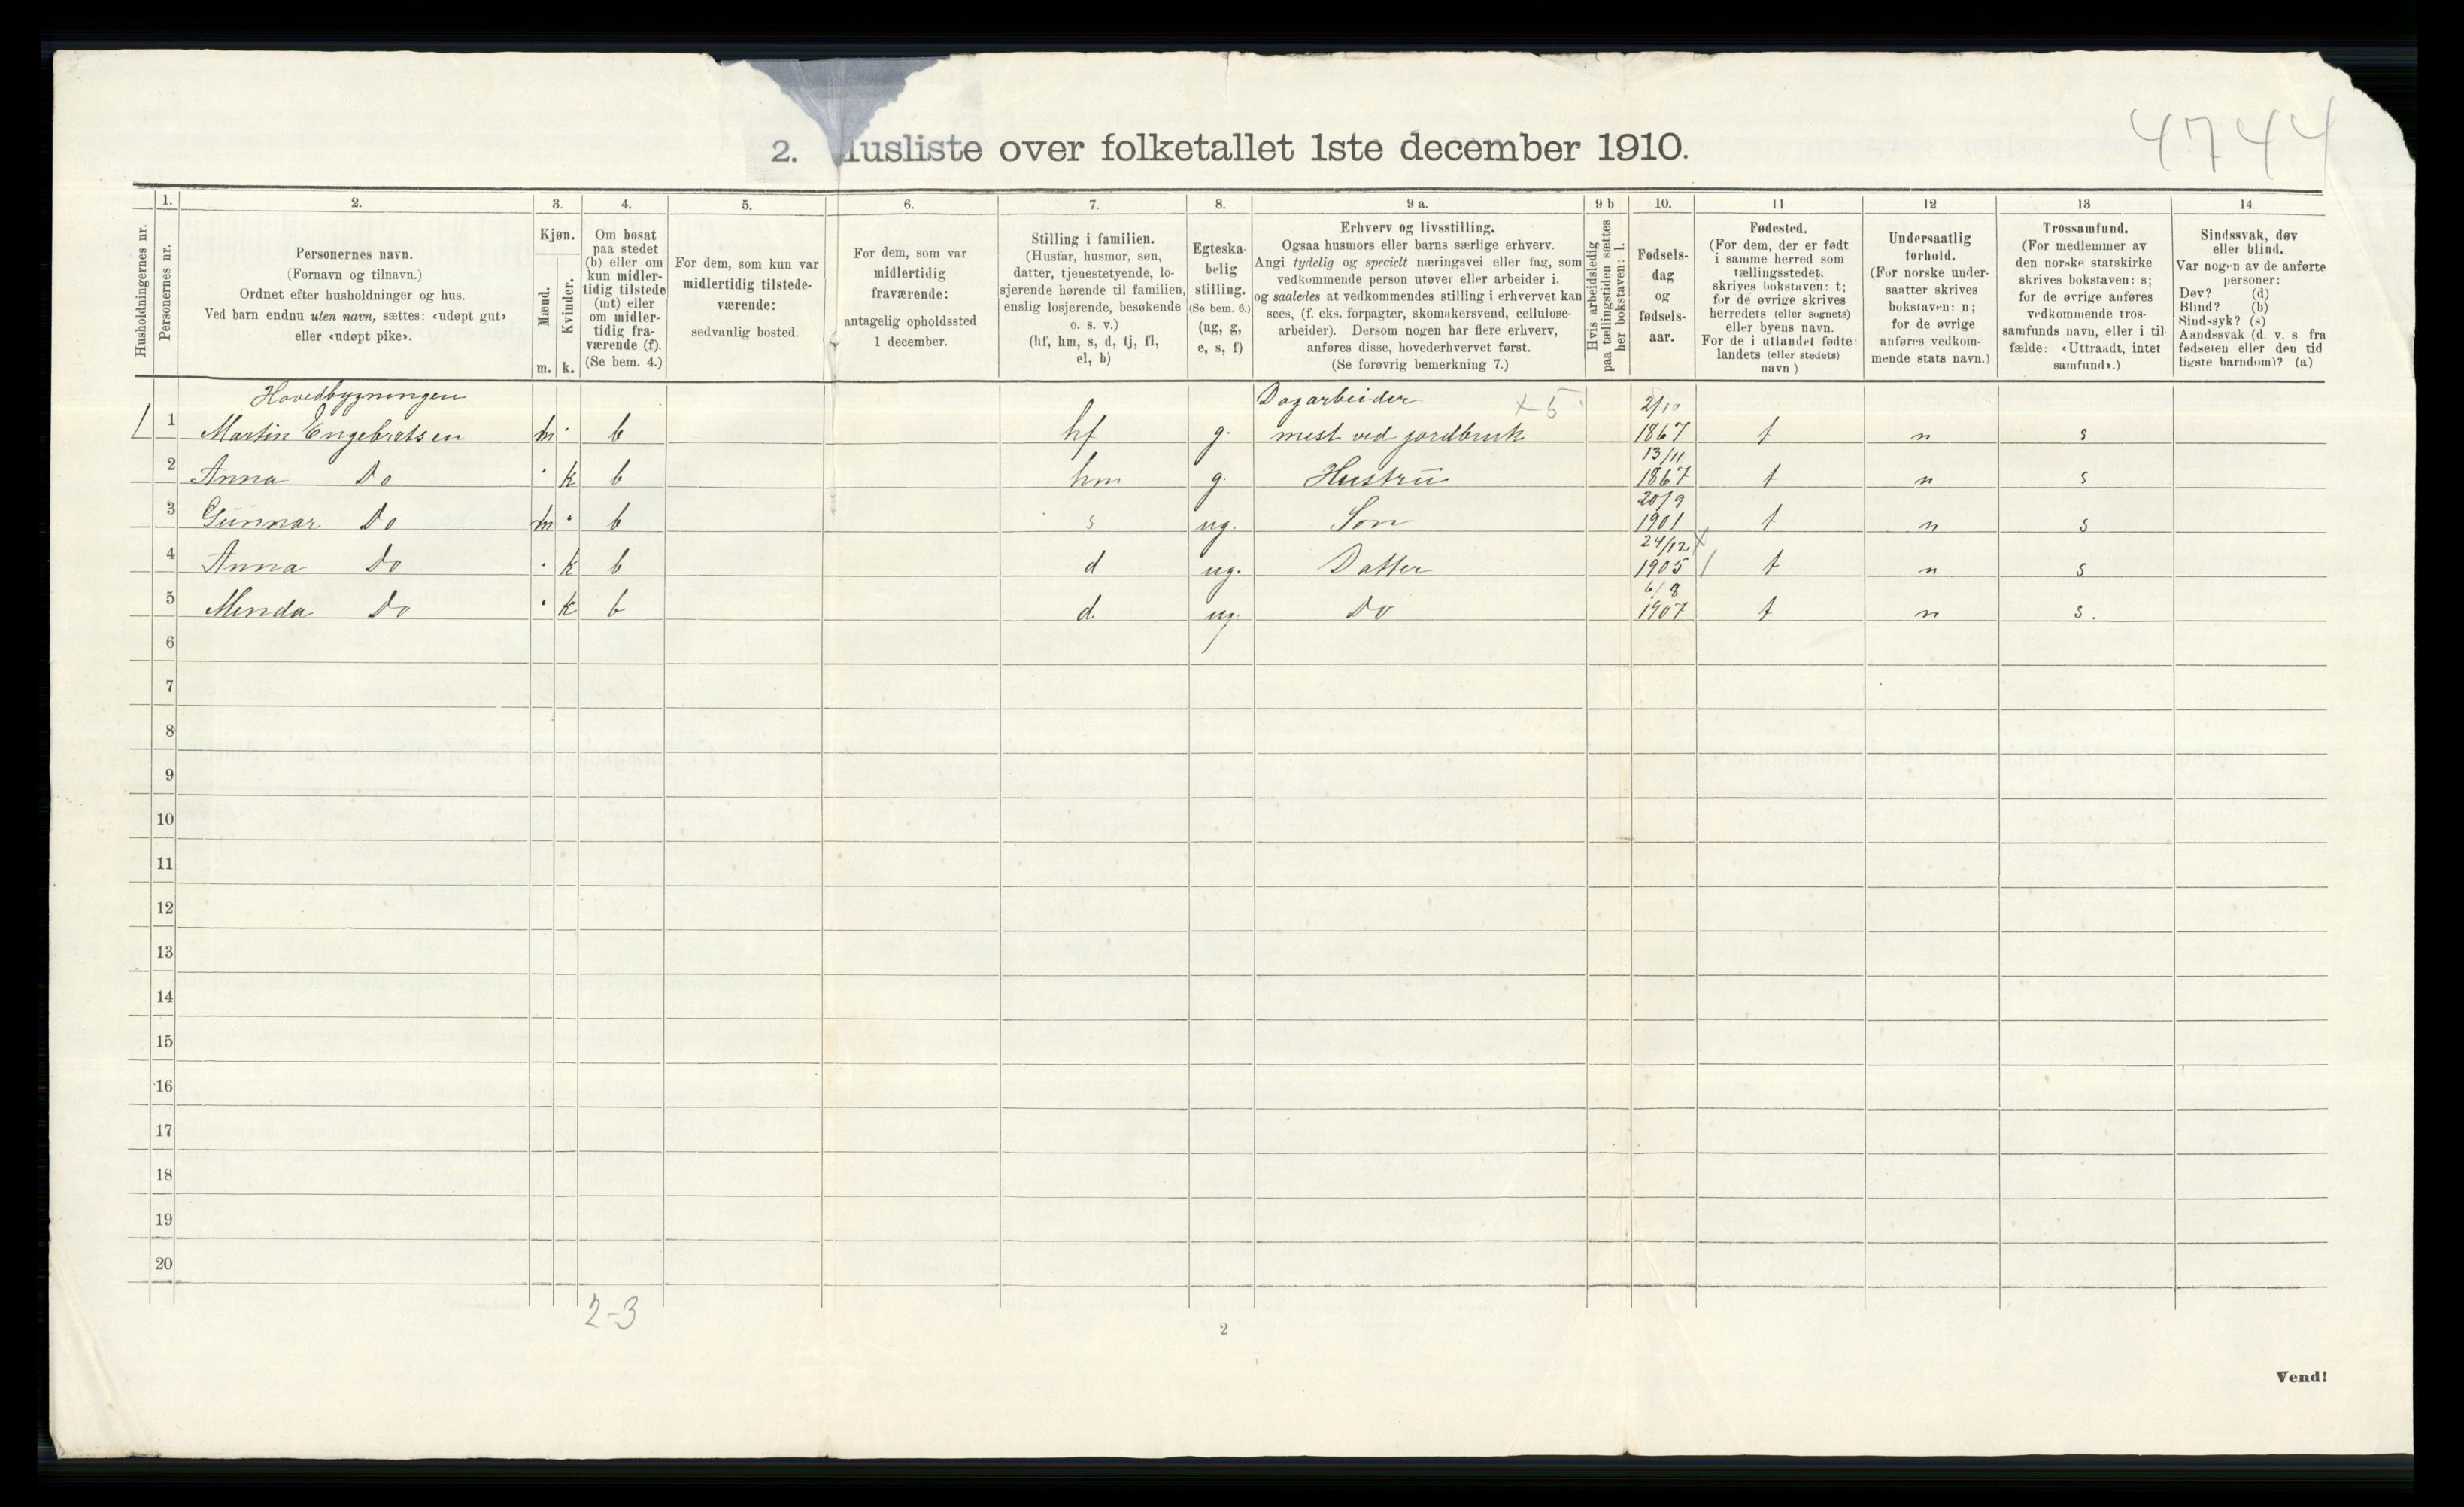 4744
2. Husliste over folketallet 1ste december 1910.
Husholdningernes nr.
1.
Personernes nr.
2.
Personernes navn.
(Fornavn og tilnavn.)
Ordnet efter husholdninger og hus.
Ved barn endnu uten navn, sættes: «udøpt gut»
eller «udøpt pike».
3.
Kjøn.
Mænd.
Kvinder.
m. k.
4.
Om bosat
paa stedet
(b) eller om
kun midler-
tidig tilstede
(mt) eller
om midler-
tidig fra-
værende (f).
(Se bem. 4.)
5.
For dem, som kun var
midlertidig tilstede-
værende:
sedvanlig bosted.
6.
For dem, som var
midlertidig
fraværende:
antagelig opholdssted
1 december.
7.
Stilling i familien.
(Husfar, husmor, søn,
datter, tjenestetyende, lo-
sjerende hørende til familien,
enslig losjerende, besøkende
o. s. v.)
(hf, hm, s, d, tj, fl,
el, b)
8.
Egteska-
belig
stilling.
(Se bem. 6.)
(ug, g,
e, s, f)
9 a.
Erhverv og livsstilling.
Ogsaa husmors eller barns særlige erhverv.
Angi tydelig og specielt næringsvei eller fag, som
vedkommende person utøver eller arbeider i,
og saaledes at vedkommendes stilling i erhvervet kan
sees, (f. eks. forpagter, skomakersvend, cellulose-
arbeider). Dersom nogen har flere erhverv,
anføres disse, hovederhvervet først.
(Se forøvrig bemerkning 7.)
9 b
Hvis arbeidsledig
paa tællingstiden sættes
her bokstaven: l.
10.
Fødsels-
dag
og
fødsels-
aar.
11
Fødested.
(For dem, der er født
i samme herred som
tællingsstedet,
skrives bokstaven: t;
for de øvrige skrives
herredets (eller sognets)
eller byens navn.
For de i utlandet fødte:
landets (eller stedets)
navn )
12
Undersaatlig
forhold.
(For norske under-
saatter skrives
bokstaven: n;
for de øvrige
anføres vedkom-
mende stats navn.)
13
Trossamfund.
(For medlemmer av
den norske statskirke
skrives bokstaven: s;
for de øvrige anføres
vedkommende tros-
samfunds navn, eller i til
fælde: «Uttraadt, intet
samfund».)
14
Sindssvak, døv
eller blind.
Var nogen av de anførte
personer:
Døv? (d)
Blind? (b)
Sindssyk? (s)
Aandssvak (d. v. s fra
fødselen eller den tid
ligste barndom)? (a)
Hovedbygningen Dagarbeider x 5 2/10
1 Martin Engebretsen m · b hf g. mest ved jordbruk 1867 t n s
13/11
2 Anna Do · k b hm g. Hustru 1867 t n s
20/9
3 Gunnar Do m · b s ug. Søn 1901 t n s
24/12 x
4 Anna Do · k b d ug. Datter 1905 t n s
6/8
5 Minda Do · k b d. ug. Do 1907 t n s.
6
7
8
9
10
11
12
13
14
15
16
17
18
19
20
2-3
2
Vend!